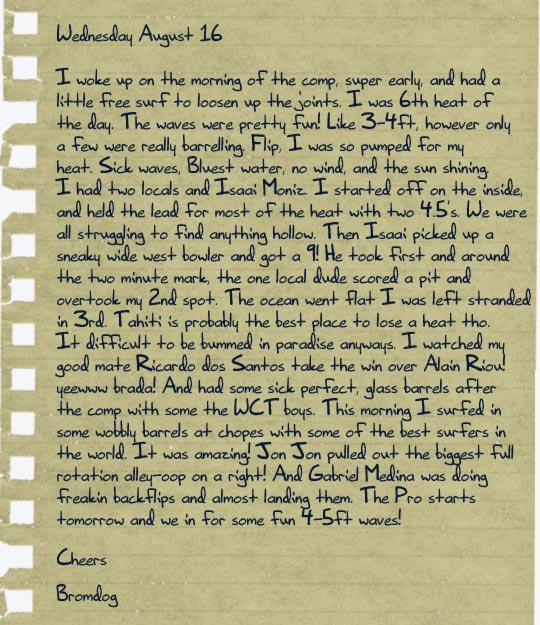 Wednesday August 16
I woke up on the morning of the comp, super early, and had a
little free surf to loosen up the joints. I was 6th heat of
the day. The waves were pretty fun! Like 3-4ft, however only
a few were really barrelling. Flip, I was so pumped for my
heat. Sick waves, Bluest water, no wind, and the sun shining.
I had two locals and Isaai Moniz. I started off on the inside,
and held the lead for most of the heat with two 4.5's. We were
all struggling to find anything hollow. Then Isaai picked up a
sneaky wide west bowler and got a 9! He took first and around
the two minute mark, the one local dude scored a pit and
overtook my 2nd spot. The ocean went flat I was left stranded
in 3rd. Tahiti is probably the best place to lose a heat tho.
It difficult to be bummed in paradise anyways. I watched my
good mate Ricardo dos Santos take the win over Alain Riou!
yeewww brada! And had some sick perfect, glass barrels after
the comp with some the WCT boys. This morning I surfed in
some wobbly barrels at chopes with some of the best surfers in
the world. It was amazing! Jon Jon pulled out the biggest full
rotation alley-oop on a right! And Gabriel Medina was doing
freakin backflips and almost landing them. The Pro starts
tomorrow and we in for some fun 4-5ft waves!
Cheers
Bromdog